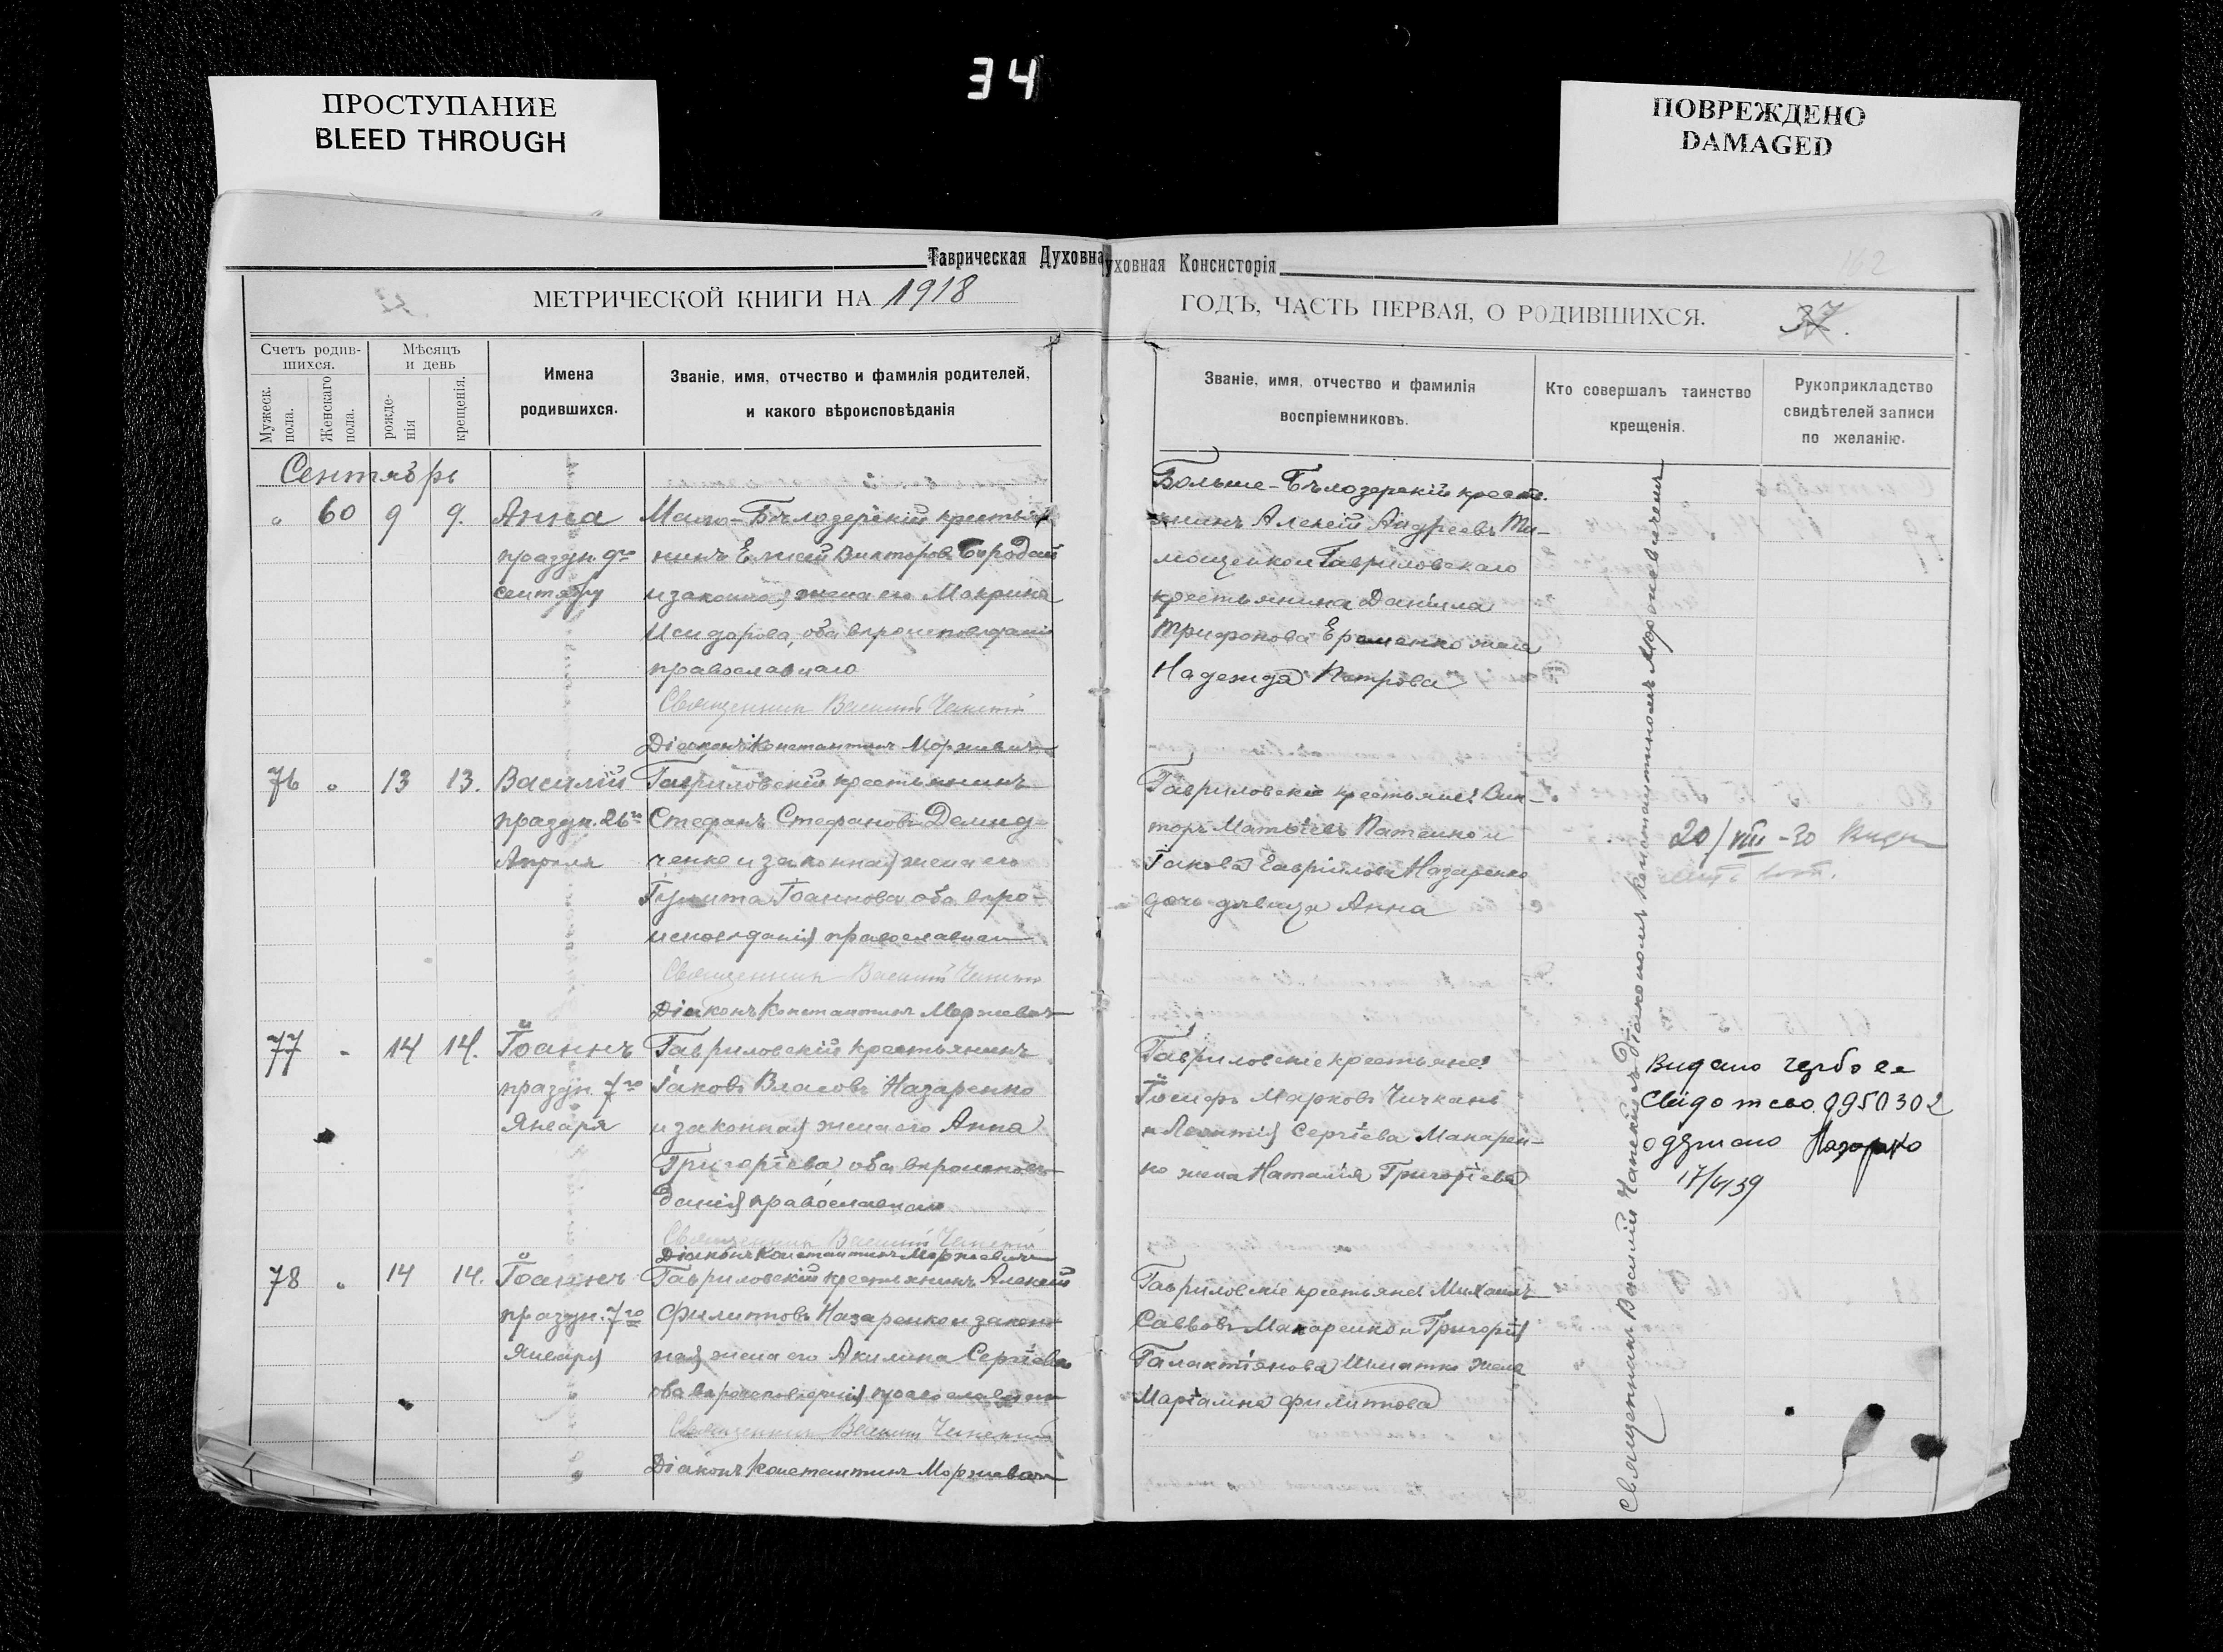 34
ПРОСТУПАНИЕ
BLEED THROUGH
ПОВРЕЖДЕНО
DAMAGED
Таврическая Духовна
уховная Консисторія
162
МЕТРИЧЕСКОЙ КНИГИ НА 1918
ГОДЪ, ЧАСТЬ ПЕРВАЯ, О РОДИВШИХСЯ.
37.
Счетъ родив-
шихся.
Мужеск.
пола.
Женскаго
пола.
Мѣсяцъ
и день
рожде-
нія
крещенія.
Имена
родившихся.
Званіе, имя, отчество и фамилія родителей,
и какого вѣроисповѣданія
Званіе, имя, отчество и фамилія
воспріемниковъ.
Кто совершалъ таинство
крещенія.
Рукоприкладство
свидѣтелей записи
по желанію.
Сентябрь
" 60 9 9.
Анна
праздн. 9го
сентября
Мало-Бѣлозерскій крестья
нинъ Елисей Викторовъ Бородай
и законная жена его Макрина
Исидорова, оба вѣроисповѣданія
православнаго
Священникъ Василій
Діаконъ Константинъ Моржевичъ
Больше-Бѣлозерскій кресть
янинъ Алексій Андреевъ Ти-
мощенко и Гавриловскаго
крестьянина Даніила
Трифонова Еременко жена
Надежда Петрова
76 " 13 13.
Василій
праздн. 26го
Апреля
Гавриловскій крестьянинъ
Стефанъ Стефановъ Демид-
ченко и законная жена его
Іулита Іоаннова оба вѣро-
исповѣданія православнаго
Священникъ Василій
Діаконъ Константинъ Моржевичъ
Гавриловскіе крестьяне: Вик-
торъ Матѳіевъ Патенко и
Іакова Гавріилова Назаренко
дочь дѣвица Анна
20/VIII-30
77 " 14 14.
Іоаннъ
праздн. 7го
Января
Гавриловскій крестьянинъ
Іаковъ Власовъ Назаренко
и законная жена его Анна
Григоріева, оба вѣроисповѣ-
данія православнаго
Священникъ Василій
Діаконъ Константинъ Моржевичъ
Гавриловскіе крестьяне:
Іосифъ Марковъ Чичкань
и Леонтія Сергіева Макарен-
ко жена Наталія Григоріева
Видано
Свідотсво 0950302
одержано
17/VI 39
78 " 14 14.
Іоаннъ
праздн. 7го
Января
Гавриловскій крестьянинъ Алексій
Филипповъ Назаренко и закон-
ная жена его Акилина Сергіева
оба вѣроисповѣданія православнаго
Священникъ Василій
Діаконъ Константинъ Моржевичъ
Гавриловскіе крестьяне: Михаилъ
Саввовъ Макаренко и Григорія
Галактіонова жена
Маріамна Филиппова
Священникъ Василій съ Діакономъ Константиномъ Моржевичемъ